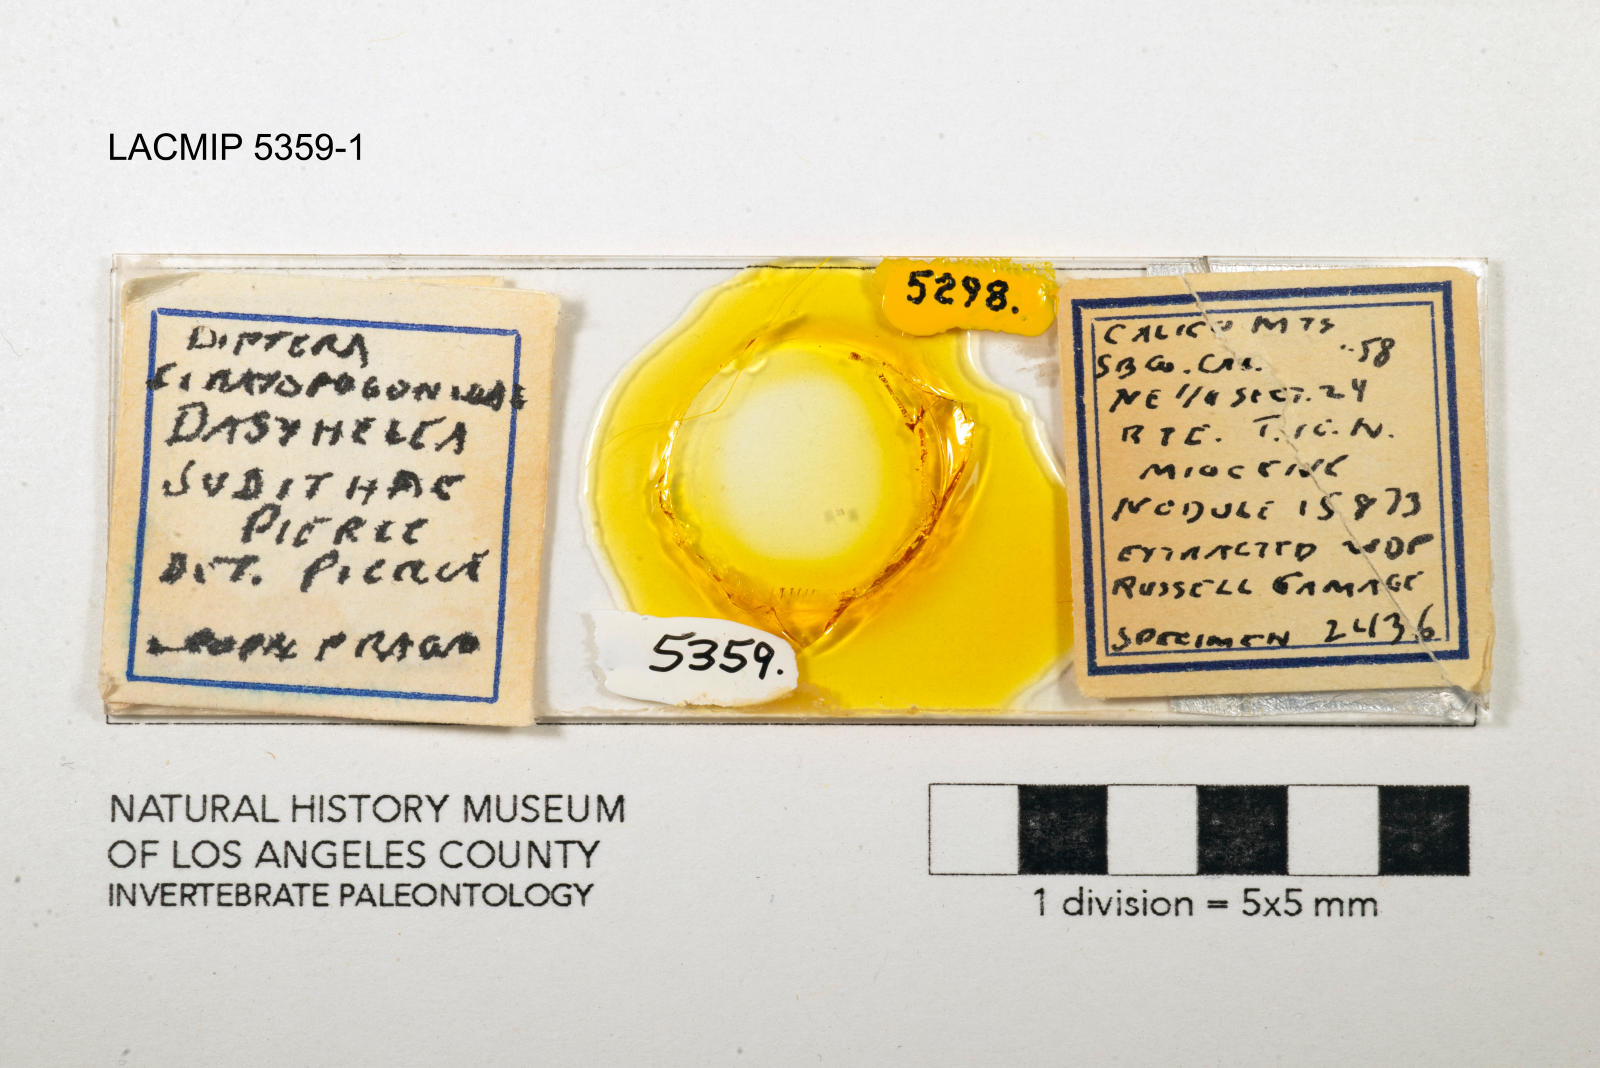 LACMIP 5359-1
DIPTERA
DASYHELEA
JUDITHAE
PIERCE
DET. PIERCE
5298.
5359.
CALICO MTS
'58
SBCO. CAL.
NE 1/4 SECT. 24
R1E. T.10.N.
MIOCENE
NODULE 15873
EXTRACTED WDP
RUSSELL GAMAGE
SPECIMEN 2436
NATURAL HISTORY MUSEUM
OF LOS ANGELES COUNTY
INVERTEBRATE PALEONTOLOGY
1 division = 5x5 mm